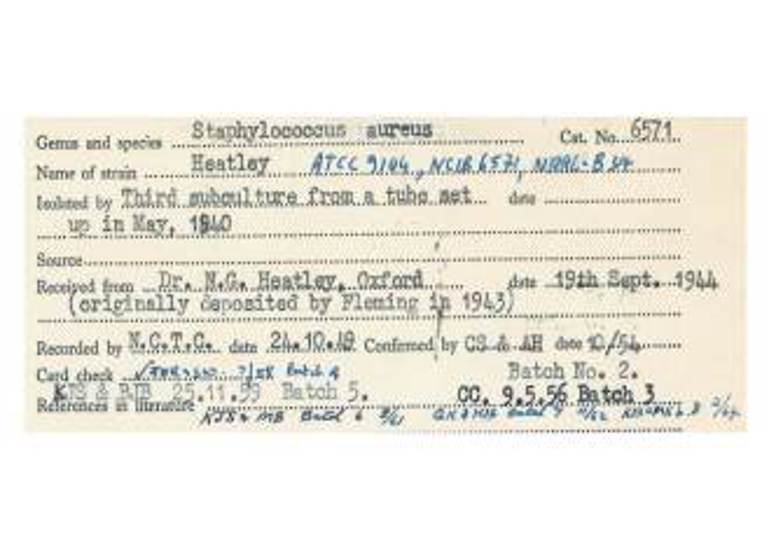 Genus and species Staphylococcus aureus Cat. No. 6571
Name of strain Heatley ATCC 9144, NCIB 6571, NRRL-B
Isolated by Third subculture from a tube set date
up in May, 1940
Source
Received from Dr. N.G. Heatley, Oxford date 19th Sept. 1944
(originally deposited by Fleming in 1943)
Recorded by N.C.T.C. date 24.10.49 Confirmed by CS & AH date 10/54
Card check Batch No. 2.
KJS & RJB 25.11.59 Batch 5. CC. 9.5.56 Batch 3
References in literature
Batch 6